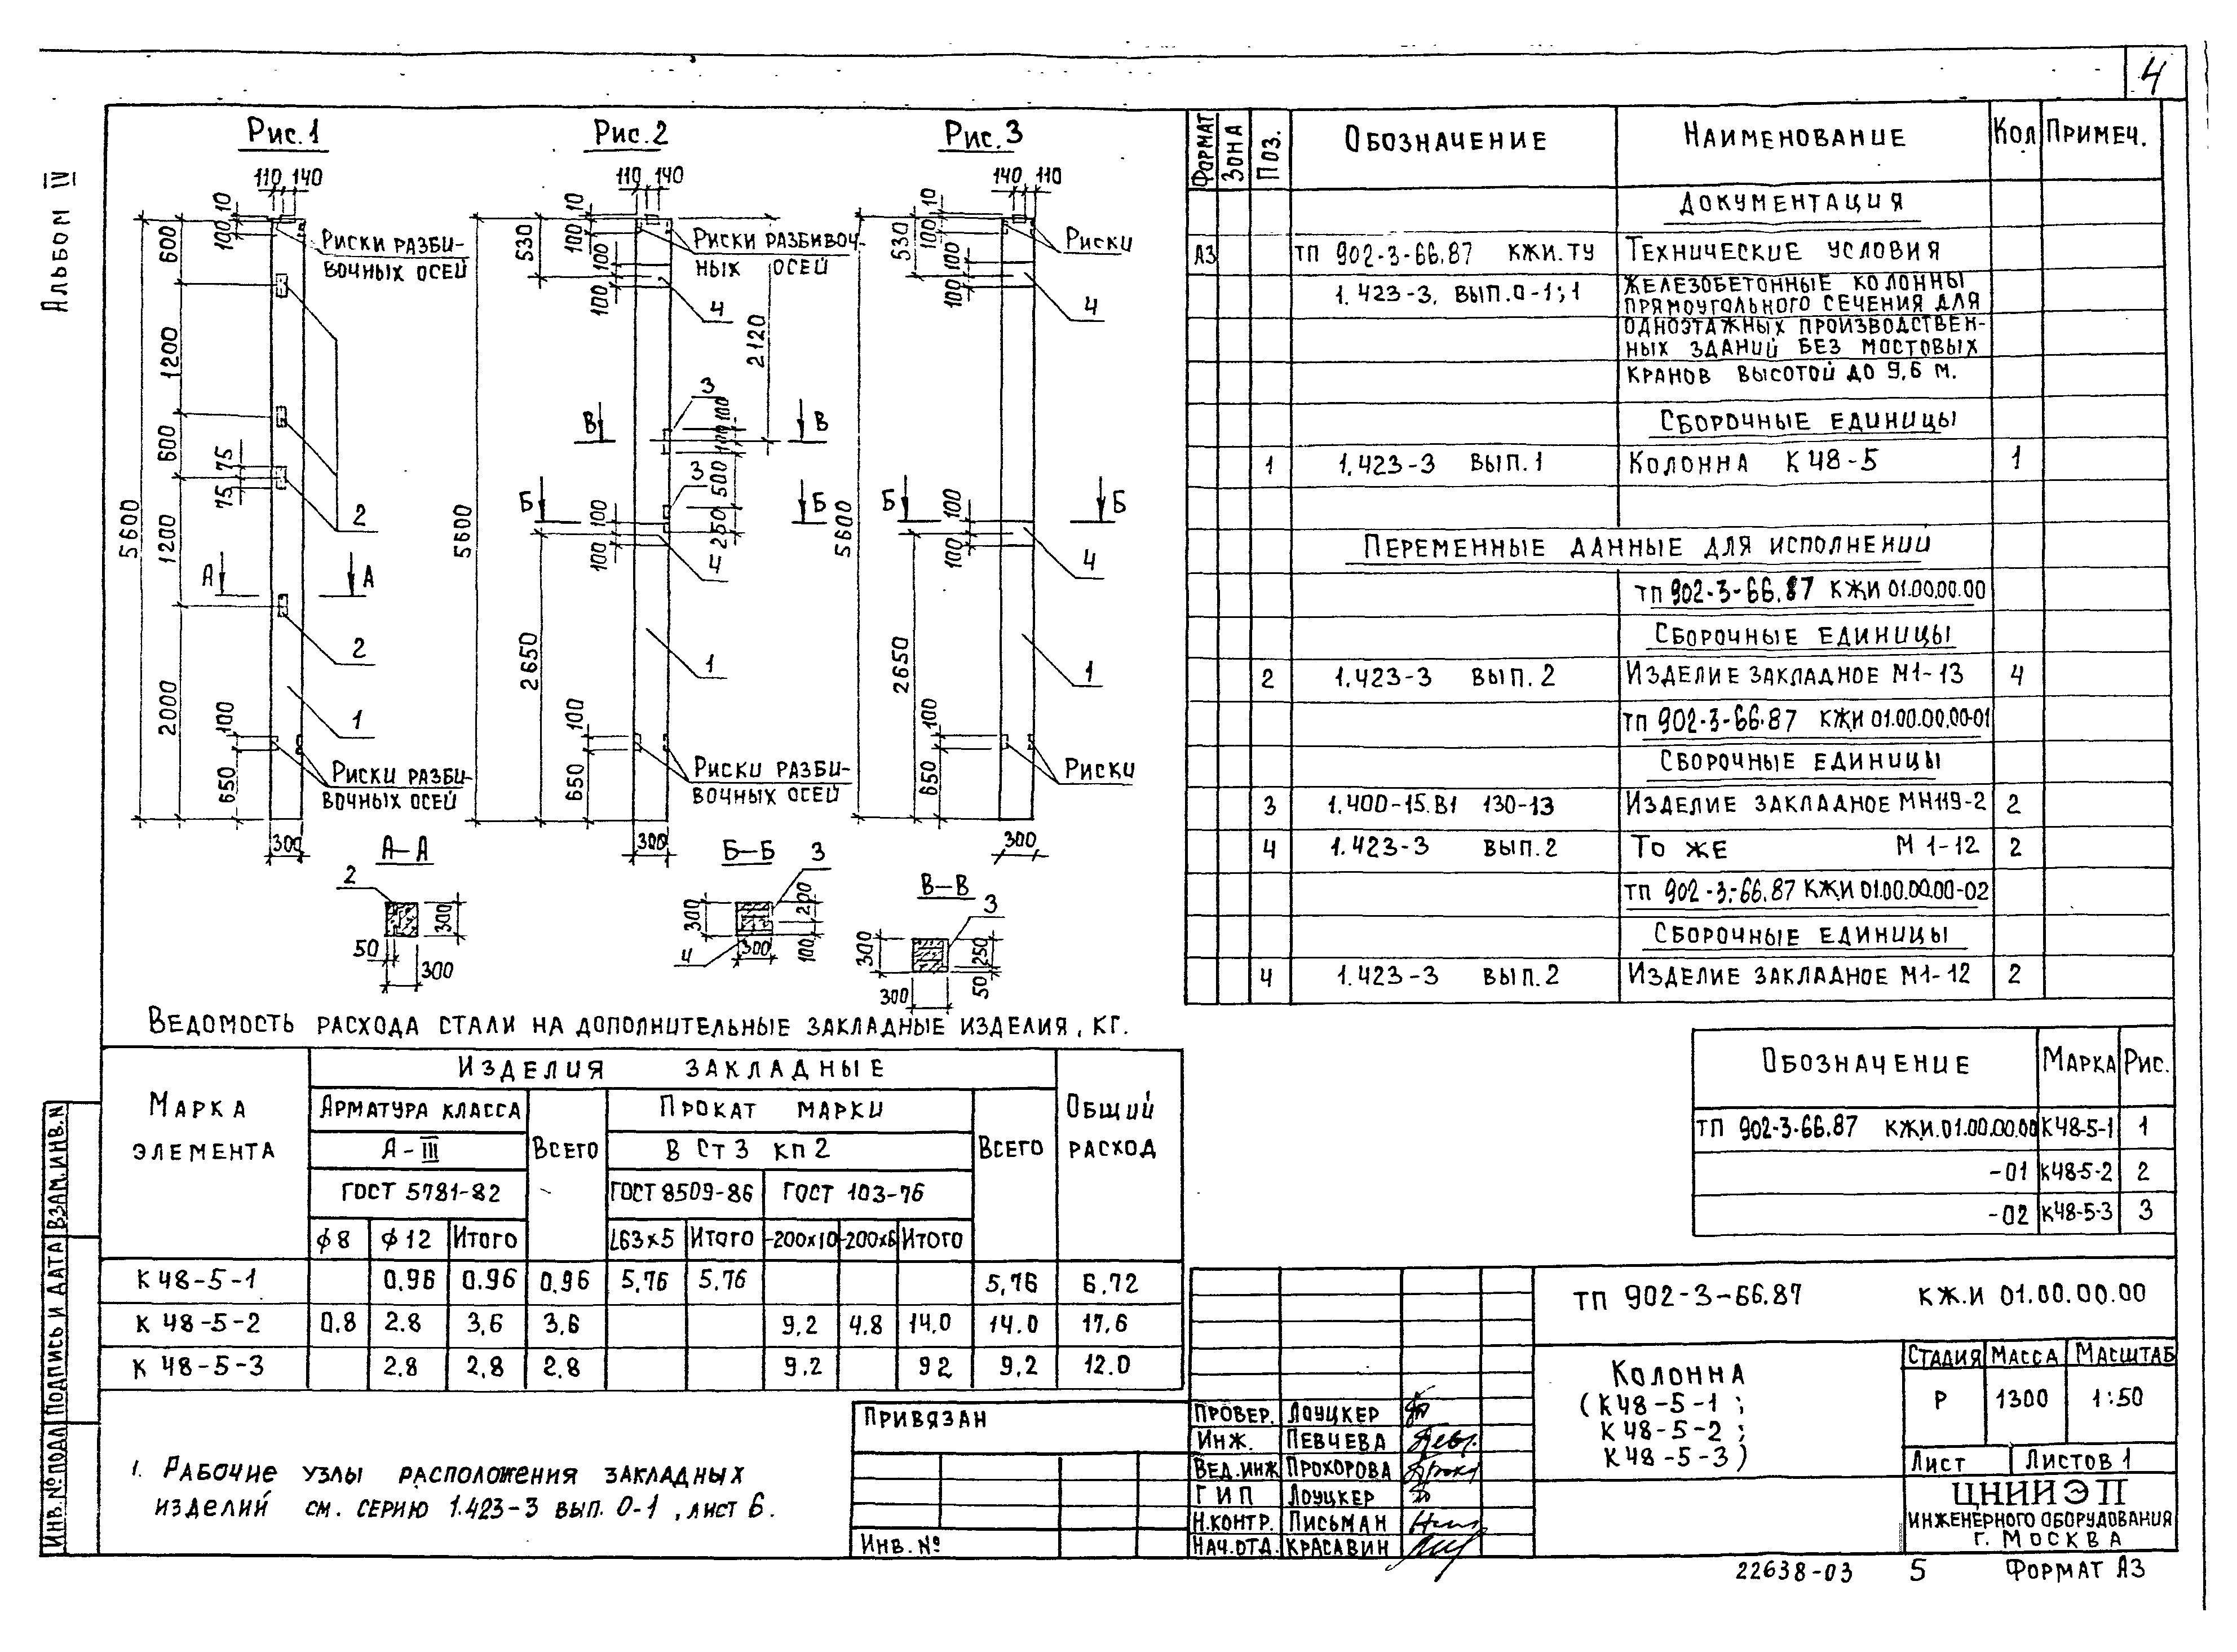 4
Альбом IV
Рис.1
Рис.2
Рис.3
110 140
110 140
140 110
10
100
600
1200
600
75
75
1200
2000
5600
100
650
300
Риски разби-
вочных осей
2
2
1
А
А
Риски разби-
вочных осей
10
100
530
100
100
5600
2650
100
100
100
650
300
Риски разбивоч-
ных осей
4
2120
3
100
100
В
В
3
500
250
Б
Б
4
1
Риски разби-
вочных осей
10
100
530
100
100
5600
2650
100
100
100
650
300
Риски
4
Б
Б
4
1
Риски
А–А
2
300
50
300
Б–Б
3
300
200
100
300
4
В–В
3
300
250
50
300
Формат
Зона
Поз.
Обозначение
Наименование
Кол
Примеч.
Документация
А3 ТП 902-3-66.87 КЖИ.ТУ Технические условия
1.423-3. вып.0-1;1 Железобетонные колонны
прямоугольного сечения для
одноэтажных производствен-
ных зданий без мостовых
кранов высотой до 9,6 м.
Сборочные единицы
1 1.423-3 вып.1 Колонна К48-5 1
Переменные данные для исполнений
ТП 902-3-66.87 КЖИ 01.00.00.00
Сборочные единицы
2 1.423-3 вып.2 Изделие закладное М1-13 4
ТП 902-3-66.87 КЖИ 01.00.00.00-01
Сборочные единицы
3 1.400-15.В1 130-13 Изделие закладное МН119-2 2
4 1.423-3 вып.2 То же М1-12 2
ТП 902-3-66.87 КЖИ 01.00.00.00-02
Сборочные единицы
4 1.423-3 вып.2 Изделие закладное М1-12 2
Ведомость расхода стали на дополнительные закладные изделия, кг.
Марка
элемента
Изделия закладные
Общий
расход
Арматура класса
А-III
ГОСТ 5781-82
Всего
Прокат марки
В Ст 3 кп 2
ГОСТ 8509-86 ГОСТ 103-76
Всего
ф8 ф12 Итого L63х5 Итого -200х10 -200х6 Итого
К 48-5-1 0.96 0.96 0,96 5,76 5,76 5,76 6,72
К 48-5-2 0.8 2.8 3,6 3,6 9,2 4,8 14,0 14.0 17,6
К 48-5-3 2.8 2,8 2,8 9,2 92 9,2 12.0
Обозначение Марка Рис.
ТП 902-3-66.87 КЖИ.01.00.00.00 К48-5-1 1
-01 К48-5-2 2
-02 К48-5-3 3
1. Рабочие узлы расположения закладных
изделий см. серию 1.423-3 вып. 0-1, лист 6.
Привязан
Инв. №
Инв.№ подл
Подпись и дата
Взам.инв.N
ТП 902-3-66.87 КЖ.И 01.00.00.00
Колонна
(К48-5-1;
К48-5-2;
К48-5-3)
Стадия Масса Масштаб
Р 1300 1:50
Лист Листов 1
ЦНИИЭП
инженерного оборудования
г. Москва
Провер. Лоуцкер
Инж. Певчева
Вед.инж Прохорова
ГИП Лоуцкер
Н.контр. Письман
Нач.отд. Красавин
22638-03 5 Формат А3